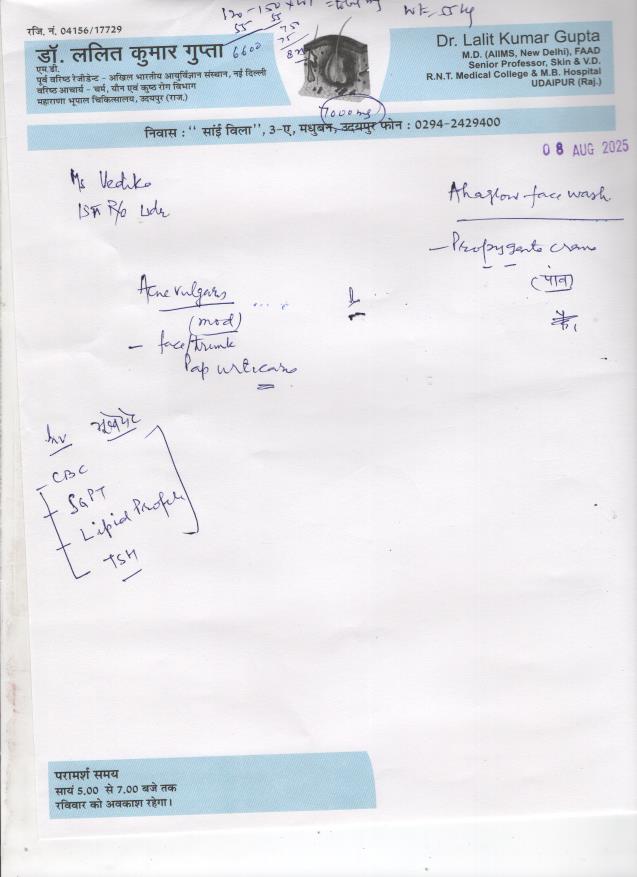 120-150 x wt =
wt - 55 kg
55
55
6600
75
75
7000 mg
रजि. नं. 04156/17729
डॉ. ललित कुमार गुप्ता
एम.डी.
पूर्व वरिष्ठ रेजीडेन्ट - अखिल भारतीय आयुर्विज्ञान संस्थान, नई दिल्ली
वरिष्ठ आचार्य - चर्म, यौन एवं कुष्ठ रोग विभाग
महाराणा भूपाल चिकित्सालय, उदयपुर (राज.)
Dr. Lalit Kumar Gupta
M.D. (AIIMS, New Delhi), FAAD
Senior Professor, Skin & V.D.
R.N.T. Medical College & M.B. Hospital
UDAIPUR (Raj.)
निवास : '' सांई विला'', 3-ए, मधुबन, उदयपुर फोन : 0294-2429400
08 AUG 2025
Ms Vedika
R/o Udr
Ahaglow face wash
- Propygenta cream
(पांव)
Acne vulgaris
(mod)
- face/trunk
Pap urticaria
Inv भूखे पेट
- CBC
- SGPT
- Lipid Profile
- TSH
परामर्श समय
सायं 5.00 से 7.00 बजे तक
रविवार को अवकाश रहेगा।